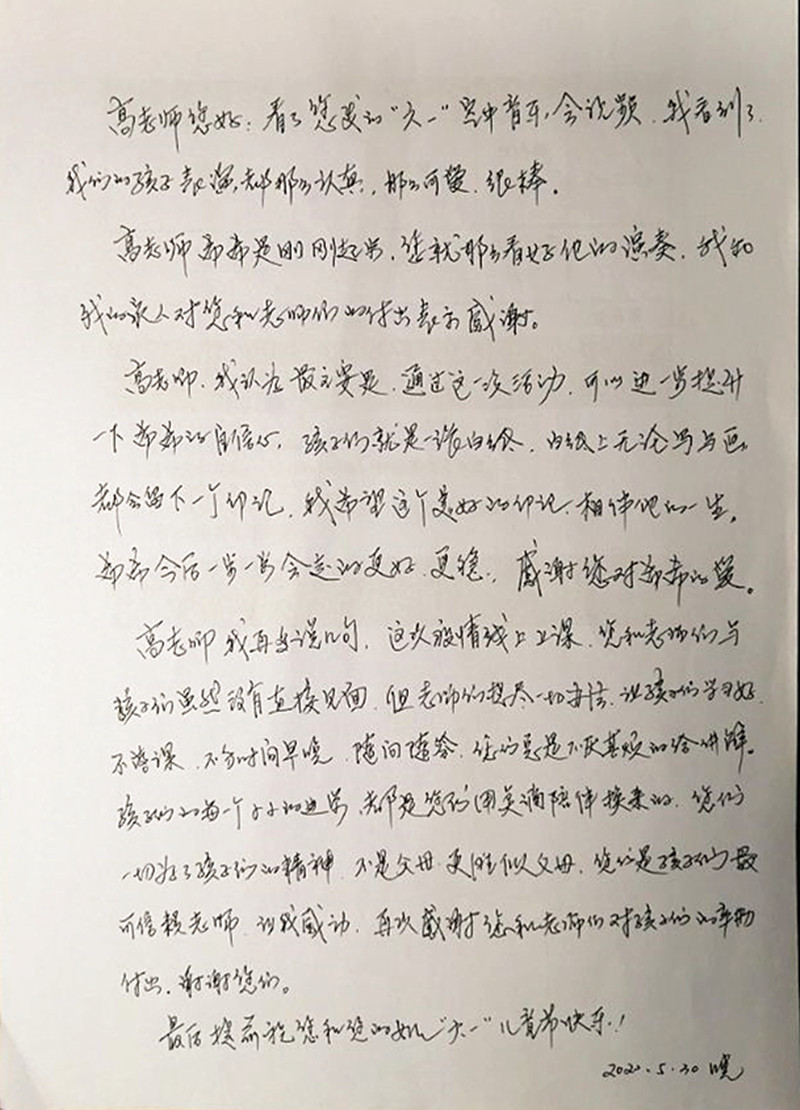 高老师您好：看了您发的“六一”空中音乐会视频，我看到了
我们的孩子表演，都那么认真，那么可爱，很棒。
高老师 希希是刚刚起步，您就那么看好他的演奏，我和
我的家人对您和老师们的付出表示感谢。
高老师，我认为最主要是，通过这一次活动，可以进一步提升
一下希希的自信心，孩子们就是一张白纸，白纸上无论写与画，
都会留下一个印记，我希望这个美好的印记，相伴他们一生，
希希今后一步一步会走的更好，更稳，感谢您对希希的爱。
高老师 我再多说几句，这次疫情线上上课，您和老师们与
孩子们虽然没有直接见面，但老师们想尽一切办法，让孩子们学习好，
不落课，不分时间早晚，随问随答，您们总是不厌其烦的给讲解。
孩子们的每一个点点的进步，都是您们用美满陪伴换来的，您们
一切为了孩子们的精神，不是父母，更胜似父母，您们是孩子们最
可信赖老师，让我感动，再次感谢您和老师们对孩子们的辛勤
付出，谢谢您们。
最后提前祝您和您的女儿“六一”儿童节快乐！
2020.5.30 晓